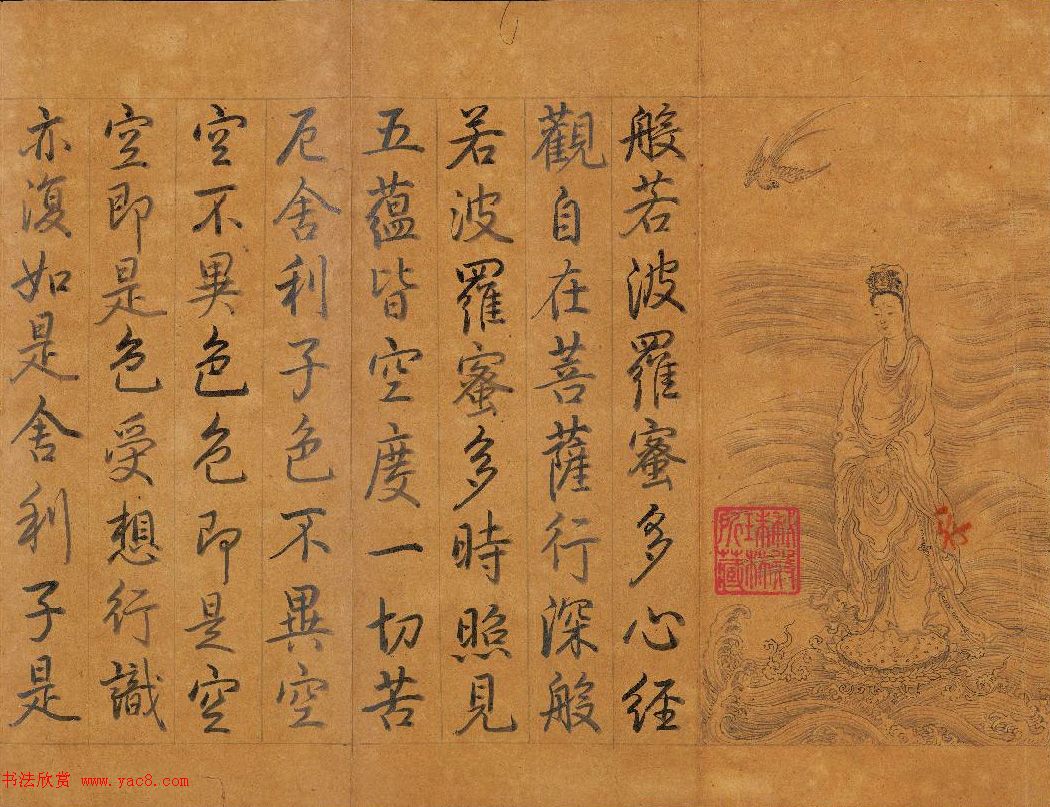 般若波羅蜜多心経
觀自在菩薩行深般
若波羅蜜多時照見
五蘊皆空度一切苦
厄舍利子色不異空
空不異色色即是空
空即是色受想行識
亦復如是舍利子是
书法欣赏 www.yac8.com